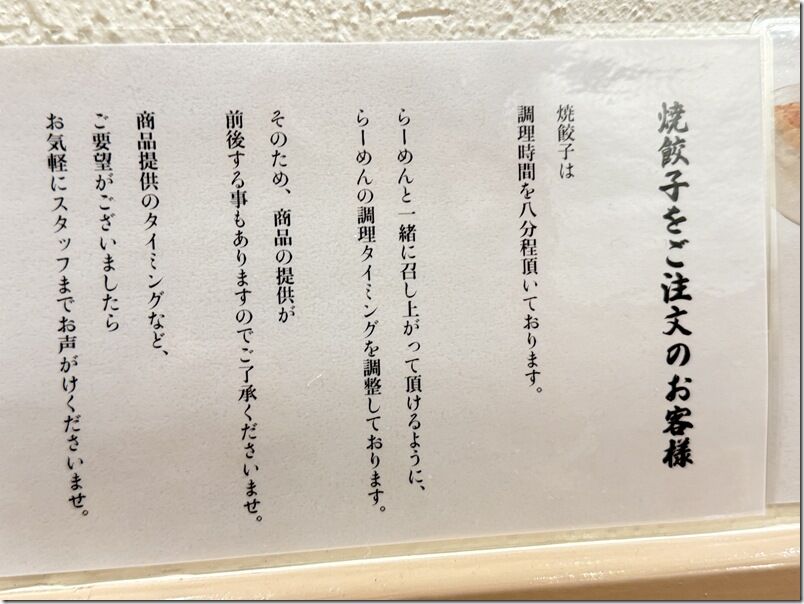 焼餃子をご注文のお客様
焼餃子は
調理時間を八分程頂いております。
らーめんと一緒に召し上がって頂けるように、
らーめんの調理タイミングを調整しております。
そのため、商品の提供が
前後する事もありますのでご了承くださいませ。
商品提供のタイミングなど、
ご要望がございましたら
お気軽にスタッフまでお声がけくださいませ。